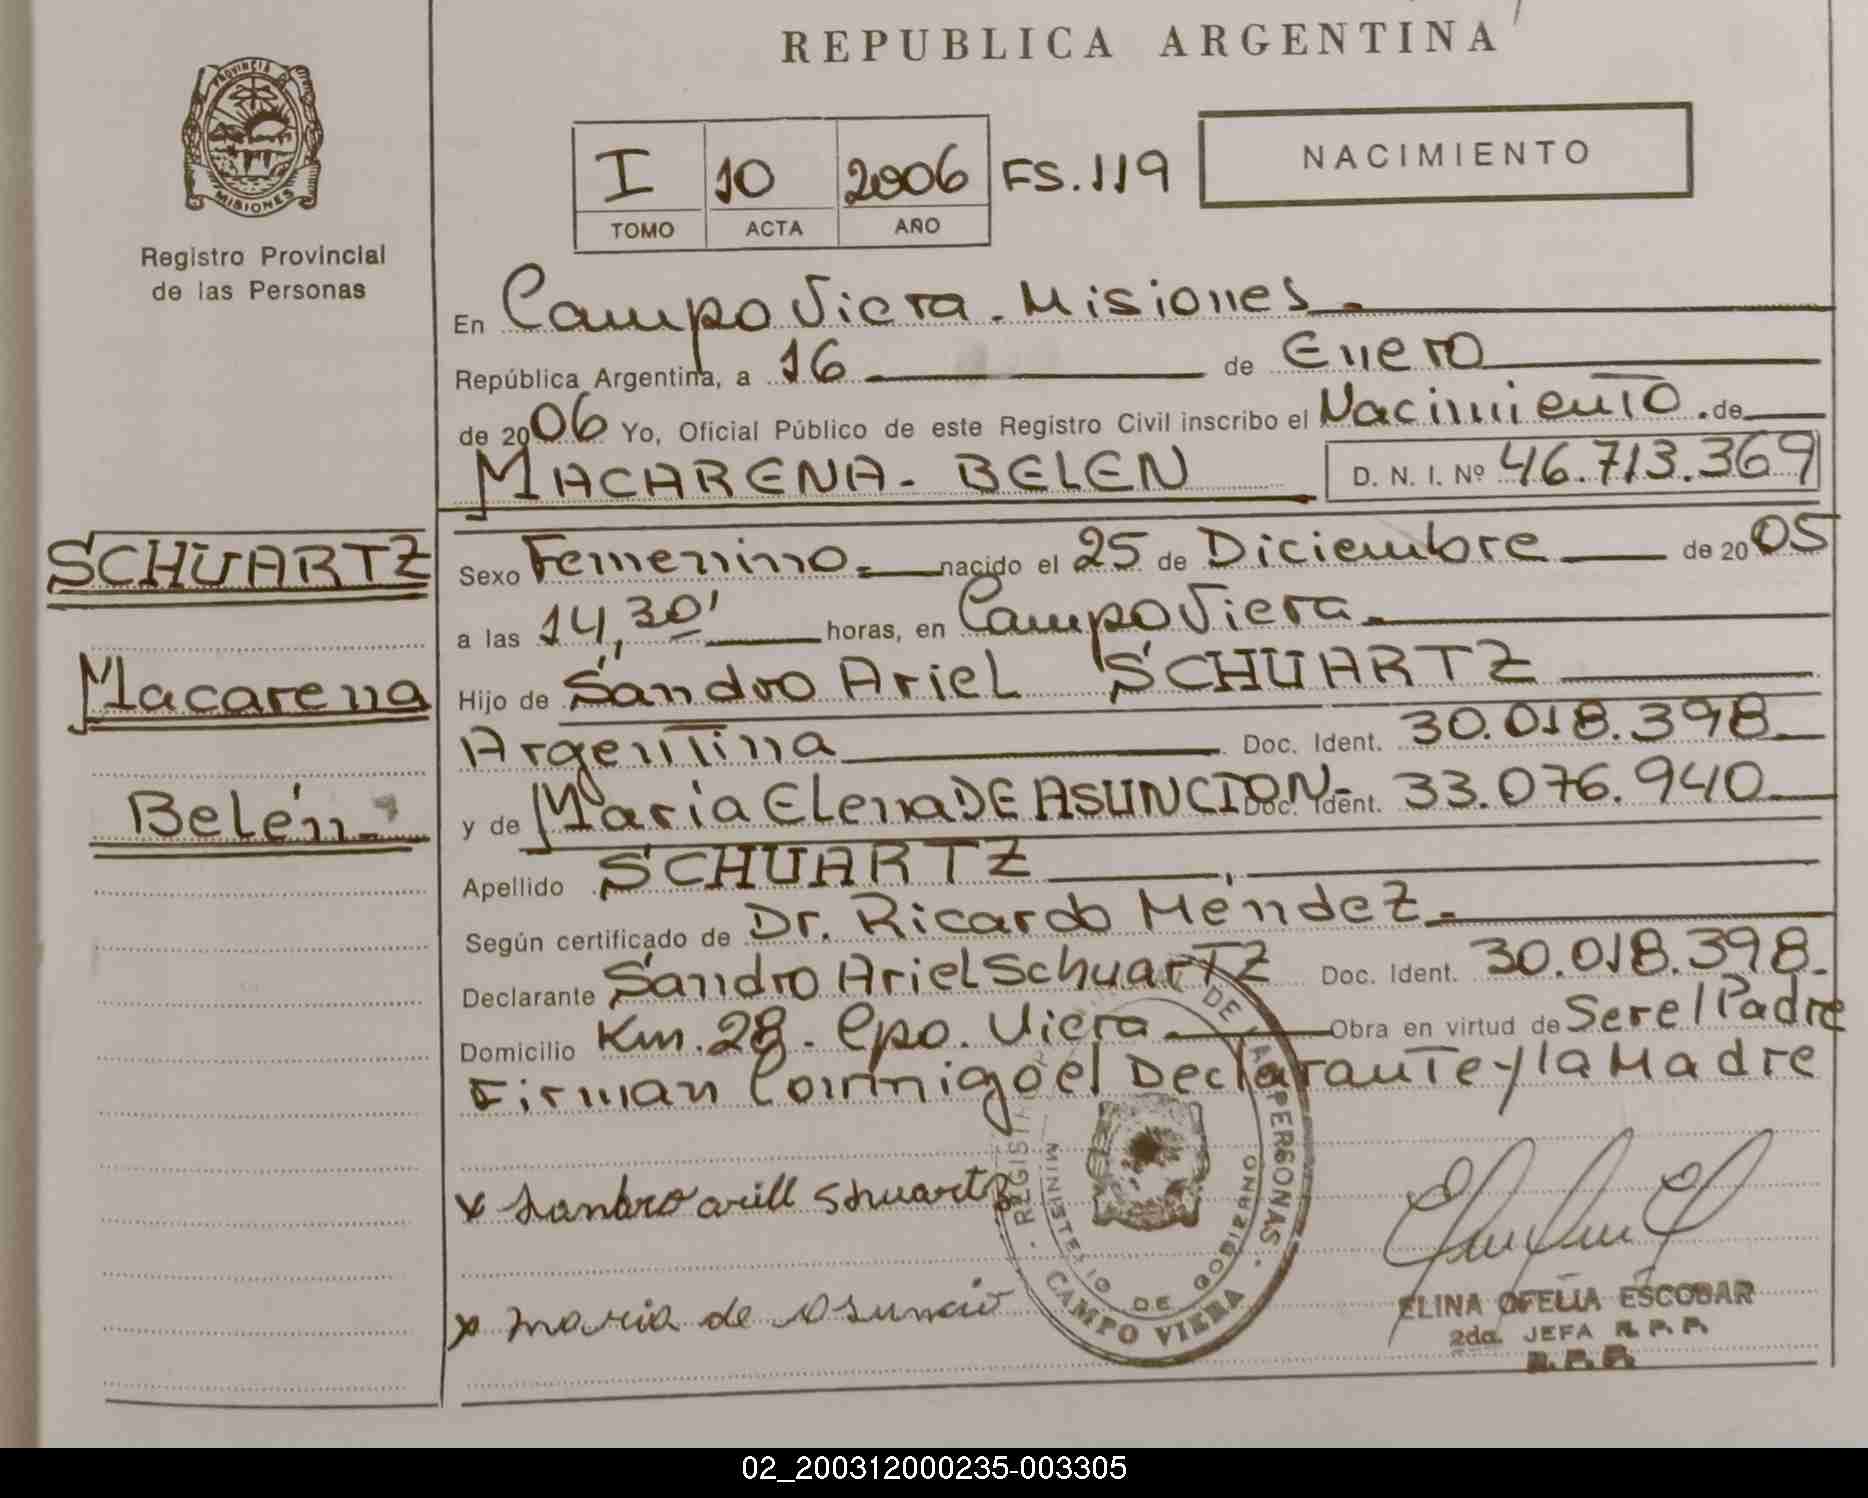 REPUBLICA ARGENTINA
PROVINCIA DE
MISIONES
Registro Provincial
de las Personas
I 10 2006 FS.119
TOMO ACTA AÑO
NACIMIENTO
En Campo Viera. Misiones
República Argentina, a 16 de Enero
de 2006 Yo, Oficial Público de este Registro Civil inscribo el Nacimiento.de
MACARENA. BELEN D. N. I. Nº 46.713.369
SCHUARTZ
Macarena
Belén.
Sexo Femenino. nacido el 25 de Diciembre de 2005
a las 14,30' horas, en Campo Viera.
Hijo de Sandro Ariel SCHUARTZ
Argentina Doc. Ident. 30.018.398
y de Maria Elena DE ASUNCION Doc. Ident. 33.076.940
Apellido SCHUARTZ
Según certificado de Dr. Ricardo Méndez.
Declarante Sandro Ariel Schuartz Doc. Ident. 30.018.398.
Domicilio Km. 28. Cpo. Viera Obra en virtud de Ser el Padre
Firman Conmigo el Declarante y la Madre
x Sandro arill Schuartz
x maria de Asuncio
DE LAS PERSONAS
MINISTERIO DE GOBIERNO
CAMPO VIERA
ELINA OFELIA ESCOBAR
2da. JEFA R.P.P.
R.P.P.
02_200312000235-003305